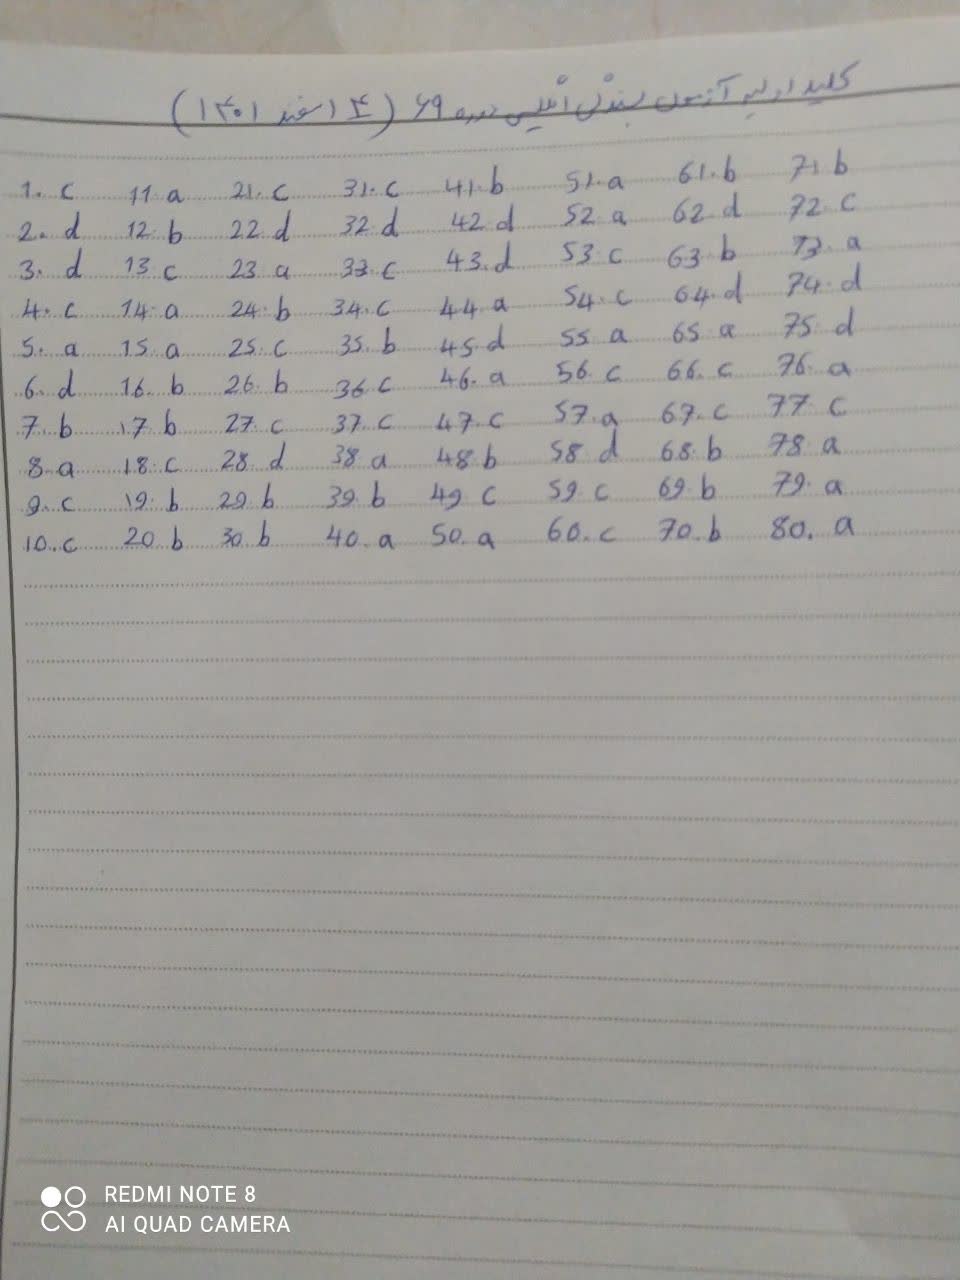 کلید اولیه آزمون بسندگی انگلیسی دوره ۶۹ (۴ اسفند ۱۴۰۱)
1. c 11. a 21. c 31. c 41. b 51. a 61. b 71. b
2. d 12. b 22. d 32. d 42. d 52. a 62. d 72. c
3. d 13. c 23. a 33. c 43. d 53. c 63. b 73. a
4. c 14. a 24. b 34. c 44. a 54. c 64. d 74. d
5. a 15. a 25. c 35. b 45. d 55. a 65. a 75. d
6. d 16. b 26. b 36. c 46. a 56. c 66. c 76. a
7. b 17. b 27. c 37. c 47. c 57. a 67. c 77. c
8. a 18. c 28. d 38. a 48. b 58. d 68. b 78. a
9. c 19. b 29. b 39. b 49. c 59. c 69. b 79. a
10. c 20. b 30. b 40. a 50. a 60. c 70. b 80. a
REDMI NOTE 8
AI QUAD CAMERA